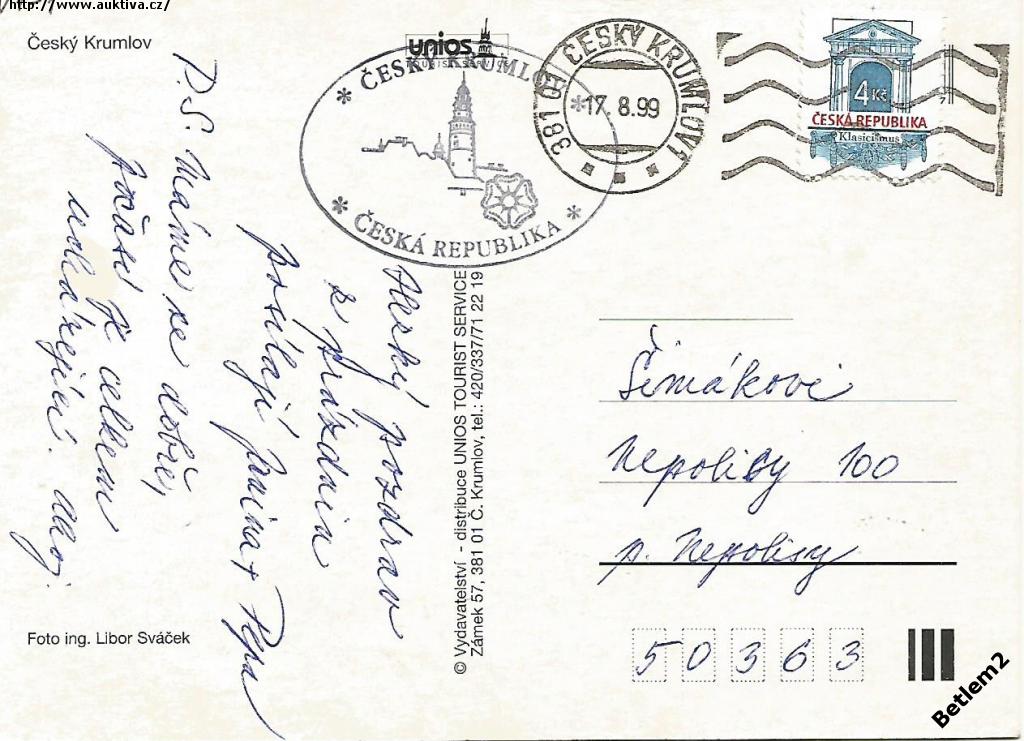 http://www.auktiva.cz/
Český Krumlov
unios
TOURIST SERVICE
* ČESKÝ KRUMLOV *
* ČESKÁ REPUBLIKA *
381 01 ČESKÝ KRUMLOV 1
17. 8. 99
4 Kč
ČESKÁ REPUBLIKA
Klasicismus
Hezký pozdrav
z prázdnin
posílají Janina + Pepa
P.S. Máme se dobře,
počasí je celkem
ucházející. ahoj.
© Vydavatelství - distribuce UNIOS TOURIST SERVICE
Zámek 57, 381 01 Č. Krumlov, tel.: 420/337/71 22 19
Šimákovi
Nepolisy 100
p. Nepolisy
50363
Foto ing. Libor Sváček
Betlem2